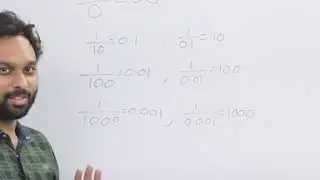 0
1/10=0.1 1/01=10
1/100=0.01 , 1/0.01=100
1/1000=0.001 , 1/0.001=1000